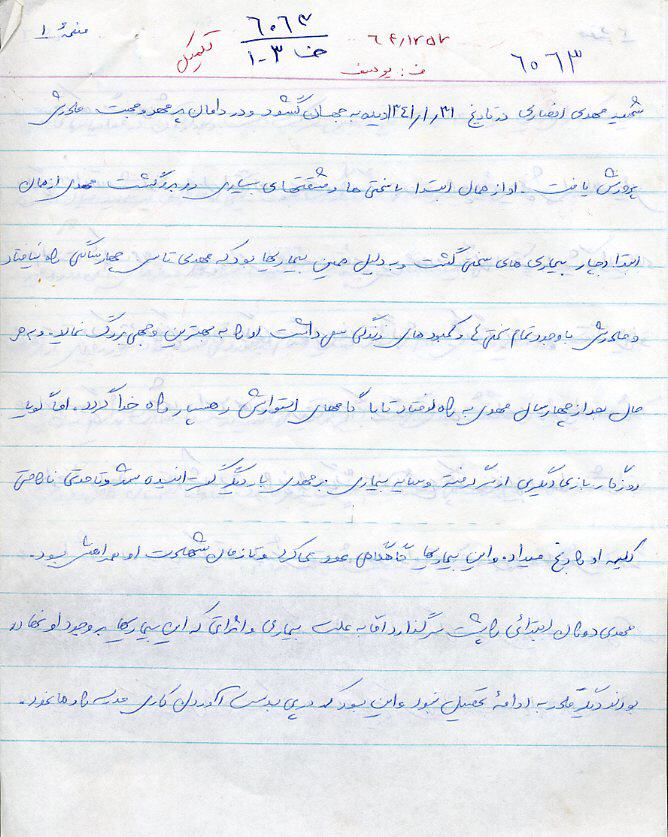 صفحهٔ ۱
تکمیل
۶۰۶۳
خسا ۳-۱
۶۴/۱۲۵۲
ف: یوسف
۶۰۶۳
شهید مهدی انصاری در تاریخ ۱۳۴۱/۱/۳۱ دیده به جهان گشود و در دامان پر مهر و محبت مادرش
پرورش یافت. او از همان ابتدا با سختی ها و مشقتهای بسیاری روبرو گشت مهدی از همان
ابتدا دچار بیماری های سختی گشت و به دلیل همین بیماریها بود که مهدی تا سن چهارسالگی راه نیافتاد
و مادرش با وجود تمام سختی ها و کمبودهای زندگی سعی داشت او را به بهترین وجهی بزرگ نماید. و به هر
حال بعد از چهار سال مهدی به راه افتاد تا با گامهای استوارش رهسپار راه خدا گردد. اما گویا
روزگار بازی دیگری از سر گرفته و سایه بیماری بر مهدی بار دیگر گسترانیده شد و ناراحتی
کلیه او را رنج میداد. و این بیماریها گاهگاهی عود میکرد و تا زمان شهادت او همراهش بود.
مهدی دوران ابتدائی را پشت سر گذارد اما به علت بیماری و اثراتی که این بیماریها بر وجود او نهاده
بودند دیگر قادر به ادامهٔ تحصیل نبود و این بود که در پی بدست آوردن کاری مدرسه را رها نمود.